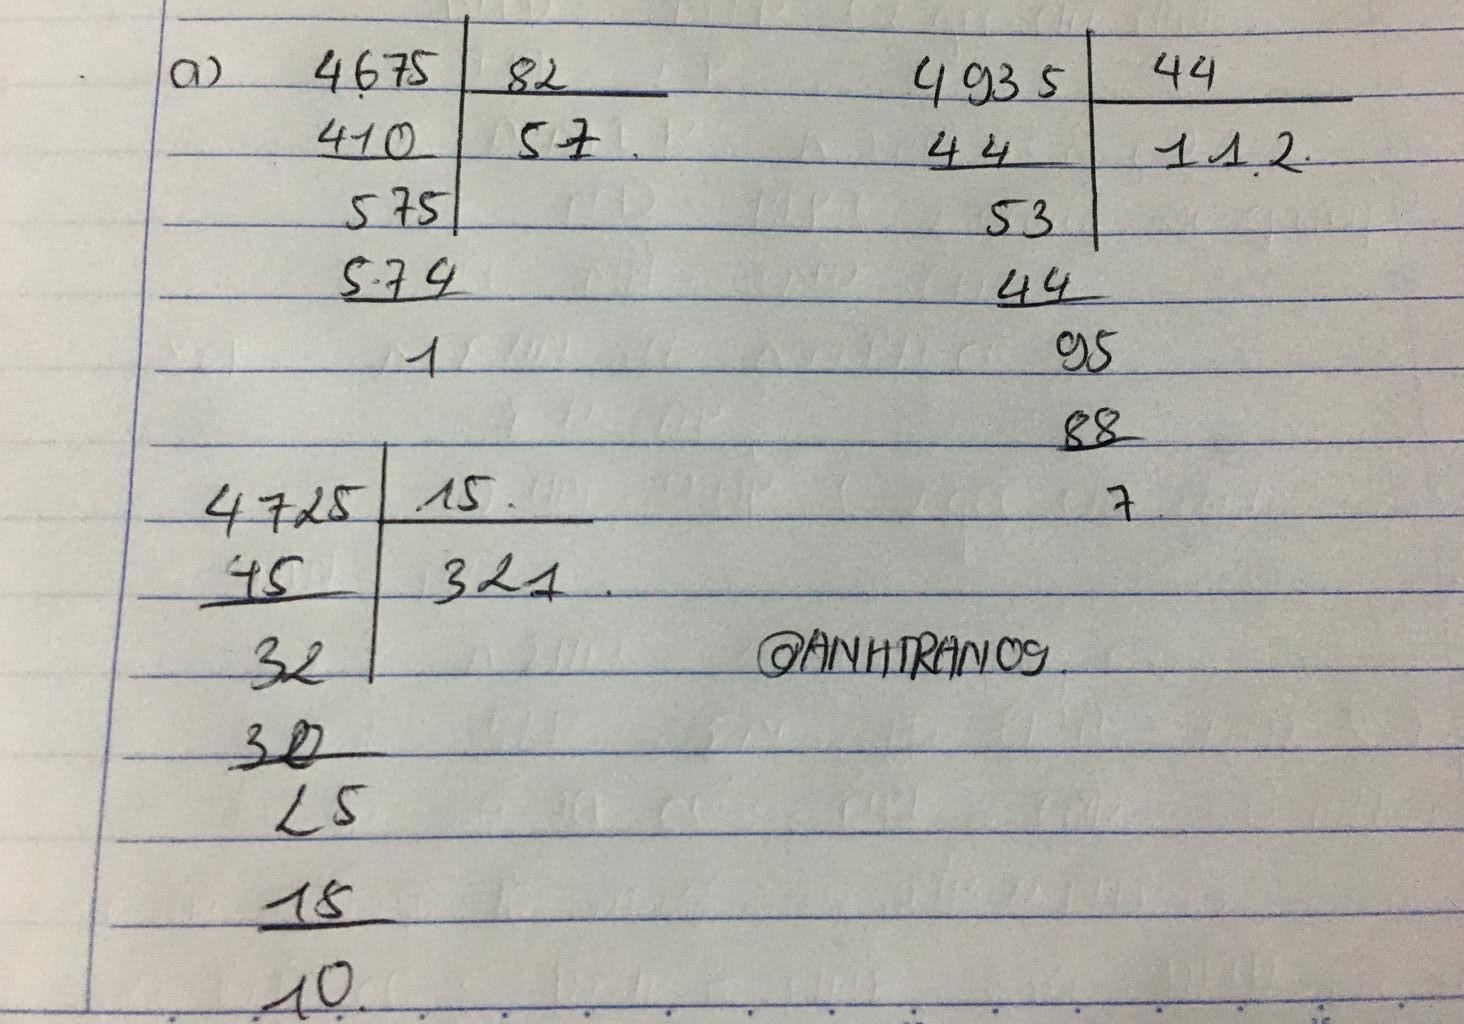 a) 4675 82
410 57.
575
574
1
4935 44
44 112.
53
44
95
88
7.
4725 15.
45 321.
32
30
25
15
10.
@ANHTRAN09.